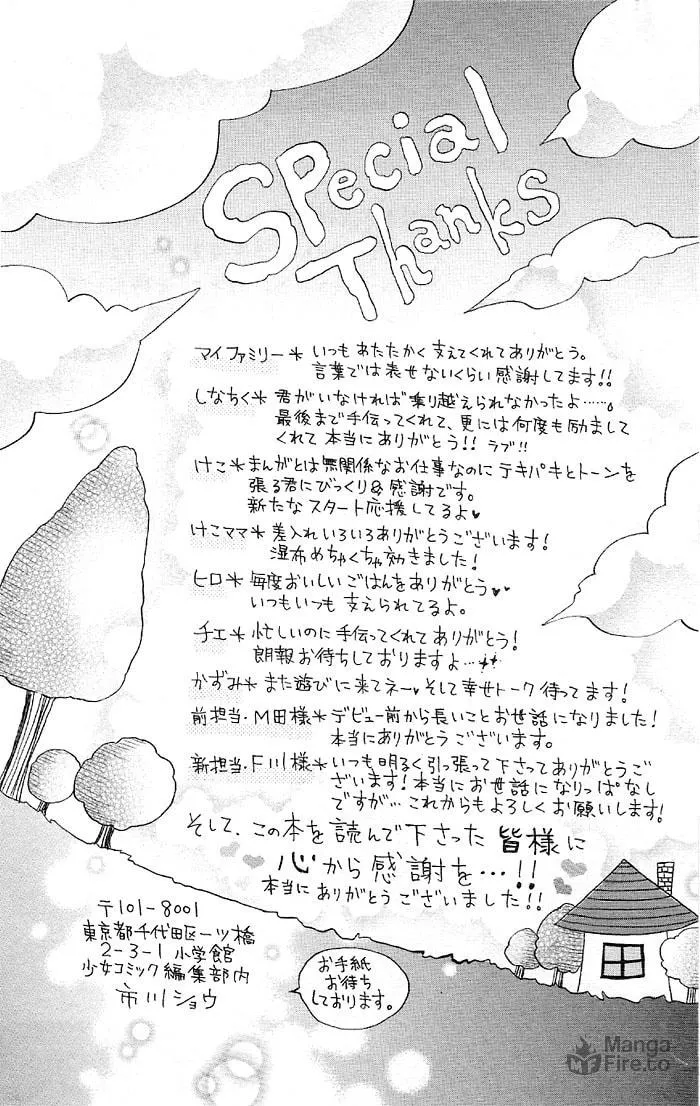 Special
Thanks
マイファミリー＊いつもあたたかく支えてくれてありがとう。
言葉では表せないくらい感謝してます!!
しなちく＊君がいなければ乗り越えられなかったよ……。
最後まで手伝ってくれて、更には何度も励まして
くれて本当にありがとう!! ラブ!!
けこ＊まんがとは無関係なお仕事なのにテキパキとトーンを
張る君にびっくり&感謝です。
新たなスタート応援してるよ♥
けこママ＊差入れいろいろありがとうございます!
湿布めちゃくちゃ効きました!
ヒロ＊毎度おいしいごはんをありがとう♥♥
いつもいつも支えられてるよ。
チエ＊忙しいのに手伝ってくれてありがとう!
朗報お待ちしておりますよ…!!
かずみ＊また遊びに来てネー♥そして幸せトーク待ってます!
前担当・M田様＊デビュー前から長いことお世話になりました!
本当にありがとうございます。
新担当・F川様＊いつも明るく引っ張って下さってありがとうご
ざいます!本当にお世話になりっぱなし
ですが…これからもよろしくお願いします!
そして、この本を読んで下さった皆様に
心から感謝を…!!
本当にありがとうございました!!
〒101-8001
東京都千代田区一ツ橋
2-3-1 小学館
少女コミック編集部内
市川ショウ
お手紙
お待ち
しております。
Manga
Fire.to